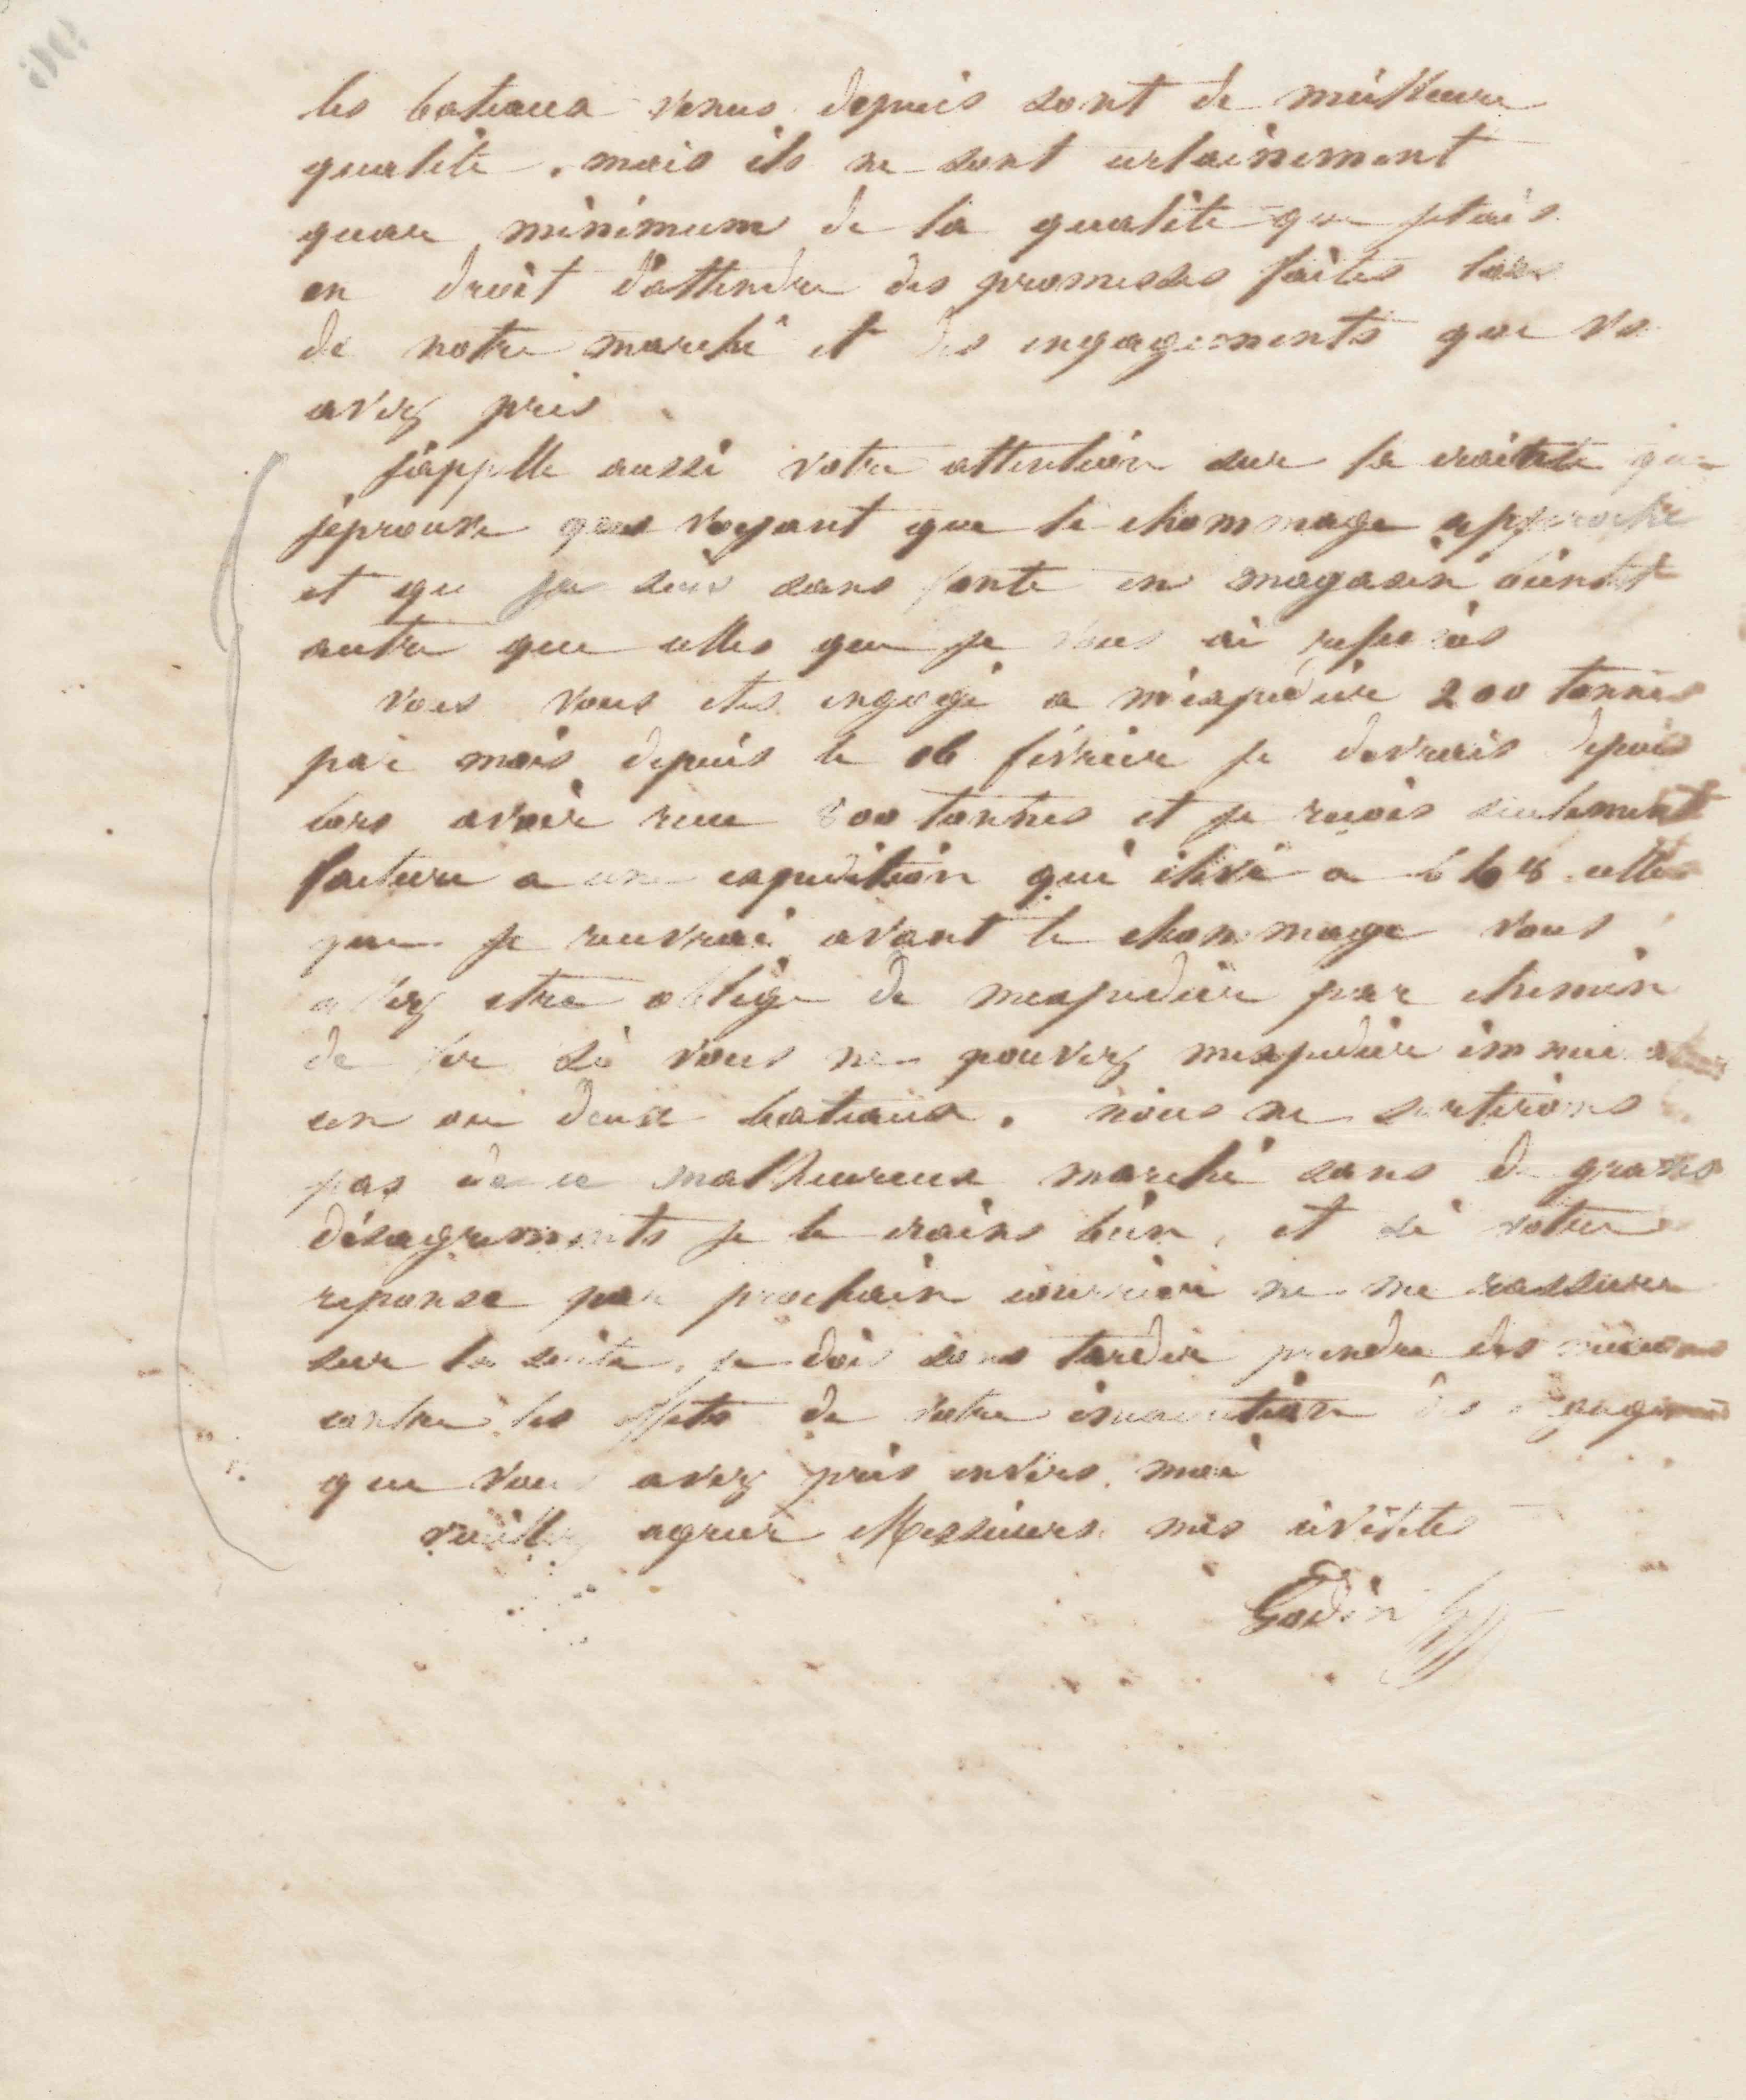 les bateaux venus depuis sont de meilleure
qualité, mais ils ne sont certainement
quau minimum de la qualité que jetais
en droit d'attendre des promesses faites lors
de notre marché et des engagements que vs
avez pris
j'appelle aussi votre attention sur la crainte que
j'eprouve voyant que le chommage approche
et que je suis sans fonte en magasin bientot
autre que celles que je vous ai refusés
vous vous etes engagé a m'expedier 200 tonnes
par mois depuis le 16 février je devrais depuis
lors avoir recu 800 tonnes et je recois seulement
facture a une expedition qui élève a 668 celles
que je recevrai avant le chommage vous
allez etre obligé de mexpedier par chemin
de fer si vous ne pouvez mexpedier
un ou deux bateaux. nous ne sortirons
pas de ce malheureux marché sans de grands
désagrements je le crains bien, et si votre
reponse par prochain courrier ne me rassure
sur la suite, je dois sans tarder prendre des mesures
contre les effets de votre inexecution des engagements
que vous avez pris envers moi
veuillez agreer Messieurs mes civilités
Godin